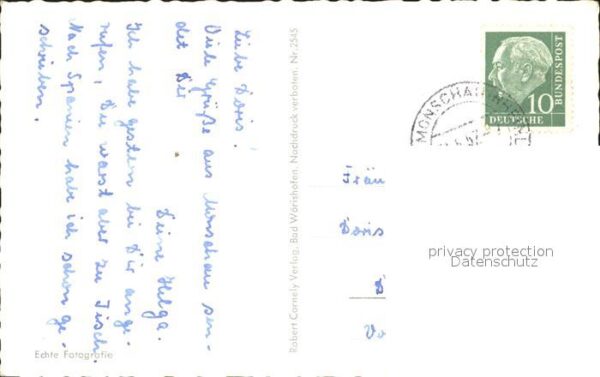 Liebe Doris!
Viele Grüße aus Monschau sen-
det Dir
Deine Helga.
Ich habe gestern bei Dir ange-
rufen, Du warst aber zu Tisch.
Nach Spanien habe ich schon ge-
schrieben.
Echte Fotografie
Robert Cornely Verlag, Bad Wörishofen. Nachdruck verboten. Nr. 2545
DEUTSCHE
BUNDESPOST
10
MONSCHAU
57
Fräu
Doris
D
Vo
privacy protection
Datenschutz